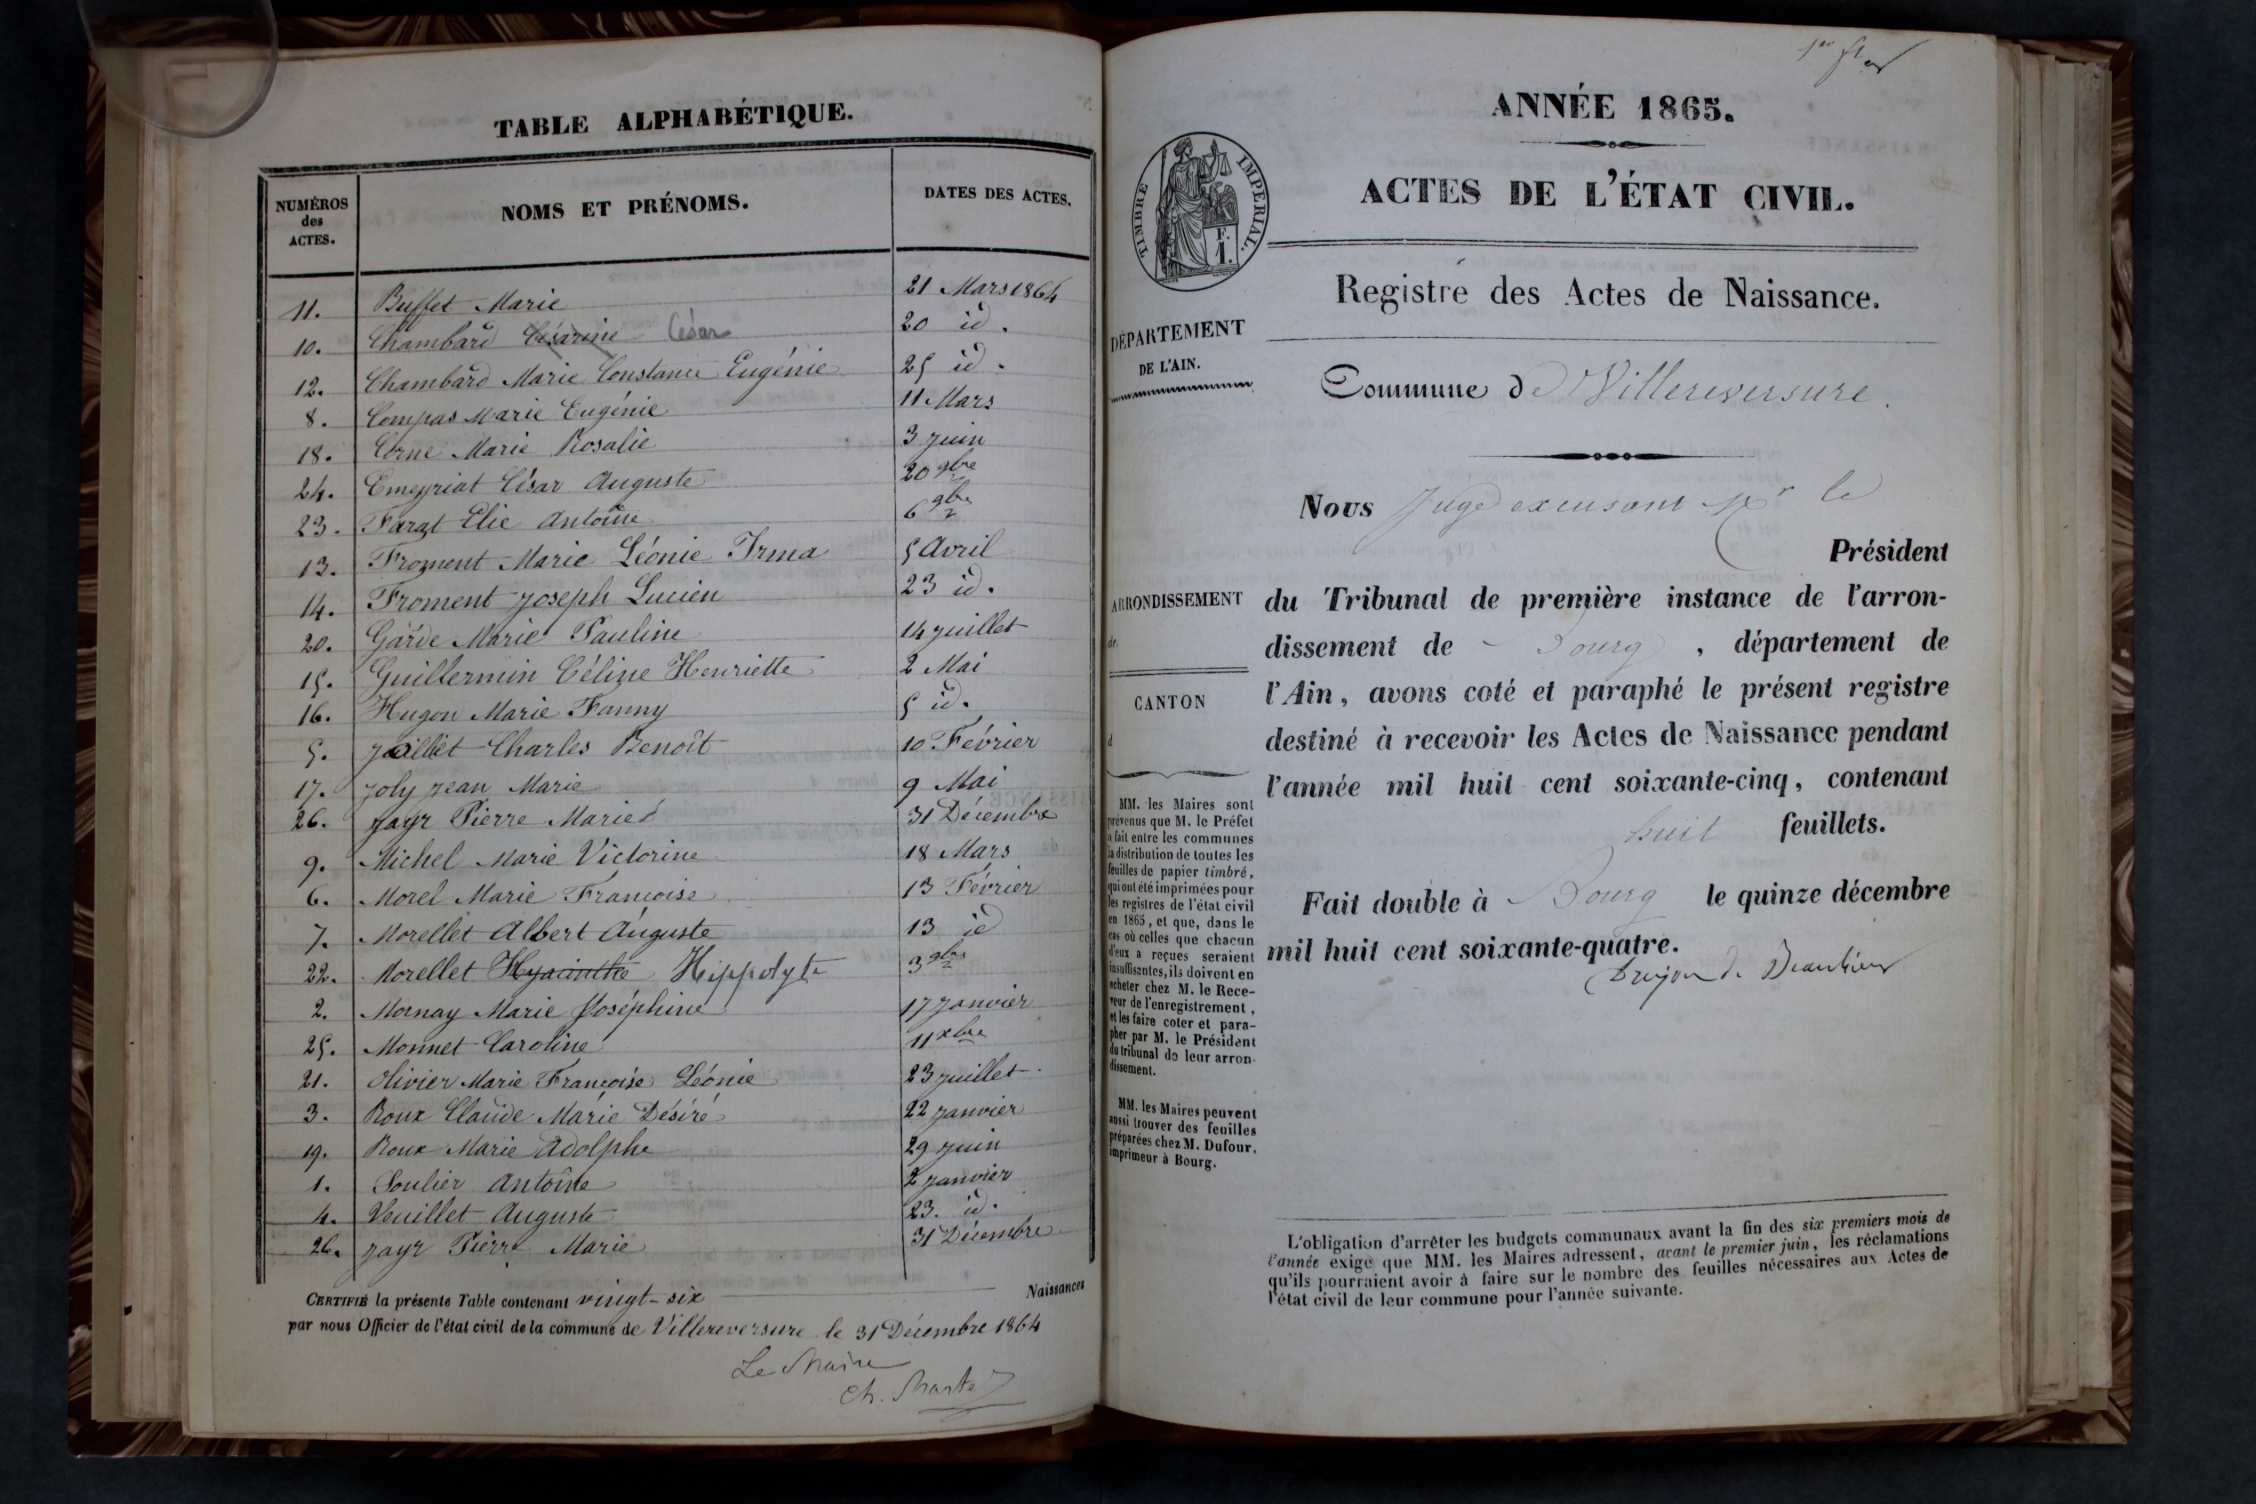 TABLE ALPHABÉTIQUE.
NUMÉROS des ACTES. NOMS ET PRÉNOMS. DATES DES ACTES.
11. Buffet Marie 21 Mars 1864
10. Chambard Césarine César 20 id.
12. Chambard Marie Constance Eugénie 25 id.
8. Compas Marie Eugénie 11 Mars
18. Corne Marie Rosalie 3 juin
24. Emeyriat César Auguste 20 9bre
23. Farat Elie Antoine 6 9bre
13. Froment Marie Léonie Irma 5 Avril
14. Froment Joseph Lucien 23 id.
20. Garde Marie Pauline 14 juillet
15. Guillermin Céline Henriette 2 Mai
16. Hugon Marie Fanny 5 id.
5. Juillet Charles Benoît 10 Février
17. Joly Jean Marie 9 Mai
26. Jayr Pierre Marie 31 Décembre
9. Michel Marie Victorine 18 Mars
6. Morel Marie Françoise 13 Février
7. Morellet Albert Auguste 13 id
22. Morellet Hyacinthe Hippolyte 3 9bre
2. Mornay Marie Joséphine 17 janvier
25. Monnet Caroline 11 xbre
21. Olivier Marie Françoise Léonie 23 juillet
3. Roux Claude Marie Désiré 22 janvier
19. Roux Marie Adolphe 29 juin
1. Soulier Antoine 2 janvier
4. Veuillet Auguste 23. id.
26. Jayr Pierre Marie 31 Décembre
CERTIFIÉ la présente Table contenant vingt-six Naissances
par nous Officier de l'état civil de la commune de Villereversure le 31 Décembre 1864
Le Maire
Ch.
1er
ANNÉE 1865.
ACTES DE L'ÉTAT CIVIL.
TIMBRE IMPÉRIAL.
F.
1.
Registre des Actes de Naissance.
DÉPARTEMENT
DE L'AIN.
Commune de Villereversure.
Nous Juge excusant Mr le
Président
ARRONDISSEMENT
de
du Tribunal de première instance de l'arron-
dissement de Bourg, département de
CANTON
d
l'Ain, avons coté et paraphé le présent registre
destiné à recevoir les Actes de Naissance pendant
l'année mil huit cent soixante-cinq, contenant
huit feuillets.
Fait double à Bourg le quinze décembre
mil huit cent soixante-quatre.
MM. les Maires sont
prévenus que M. le Préfet
a fait entre les communes
la distribution de toutes les
feuilles de papier timbré,
qui ont été imprimées pour
les registres de l'état civil
en 1865, et que, dans le
cas où celles que chacun
d'eux a reçues seraient
insuffisantes, ils doivent en
acheter chez M. le Rece-
veur de l'enregistrement,
et les faire coter et para-
pher par M. le Président
du tribunal de leur arron-
dissement.
MM. les Maires peuvent
aussi trouver des feuilles
préparées chez M. Dufour,
imprimeur à Bourg.
L'obligation d'arrêter les budgets communaux avant la fin des six premiers mois de
l'année exige que MM. les Maires adressent, avant le premier juin, les réclamations
qu'ils pourraient avoir à faire sur le nombre des feuilles nécessaires aux Actes de
l'état civil de leur commune pour l'année suivante.